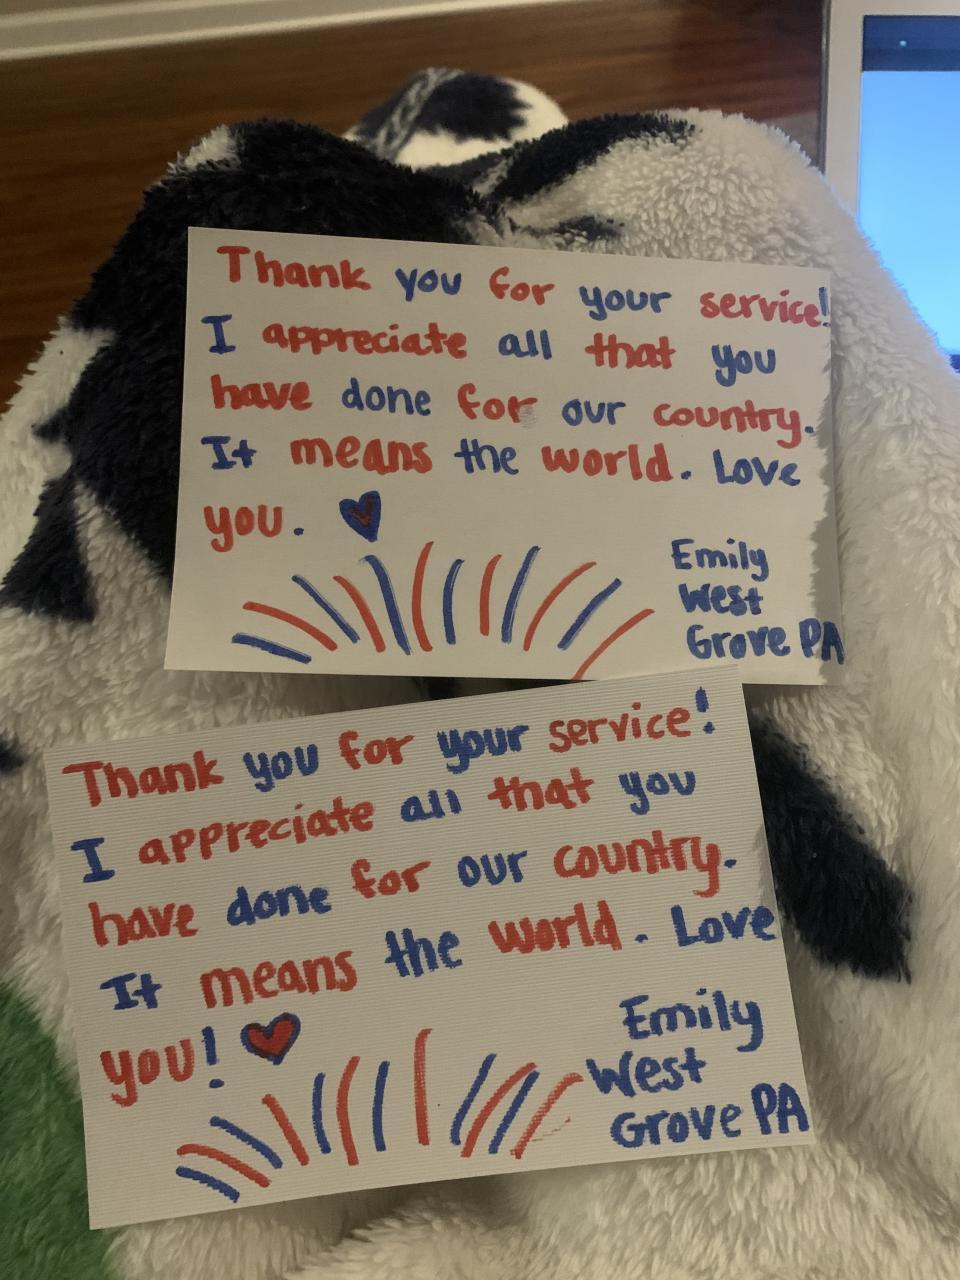 Thank you for your service!
I appreciate all that you
have done for our country.
It means the world. Love
you.
Emily
West
Grove PA
Thank you for your service!
I appreciate all that you
have done for our country.
It means the world. Love
you!
Emily
West
Grove PA